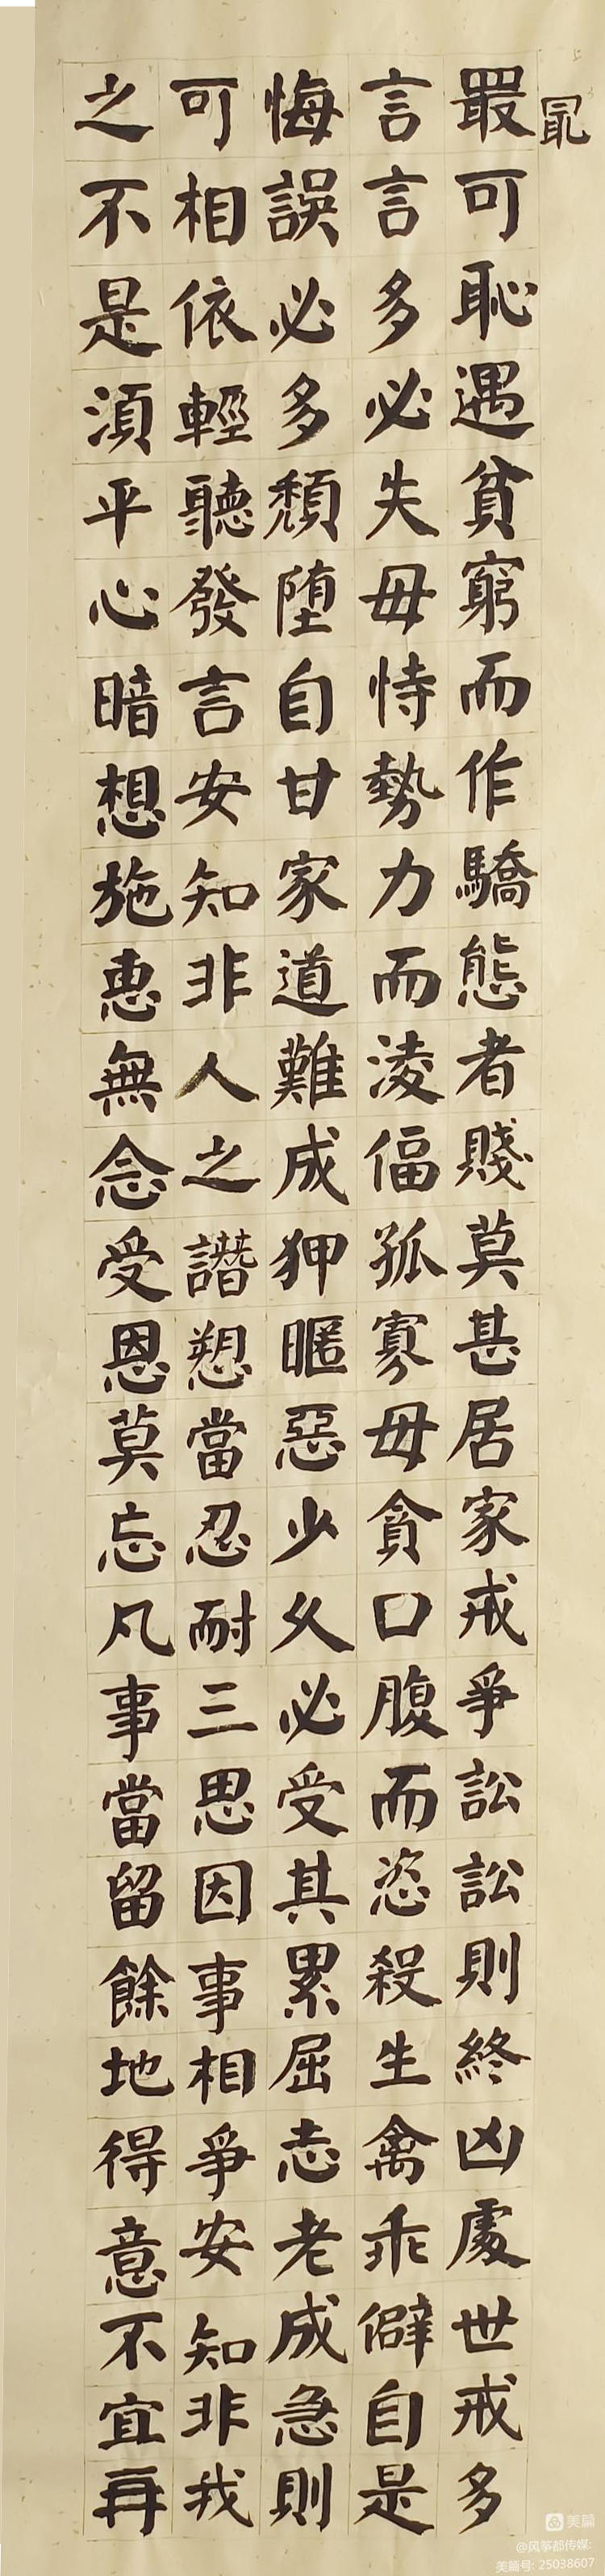 冣
最可恥遇貧窮而作驕態者賤莫甚居家戒爭訟訟則終凶處世戒多
言言多必失毋恃勢力而淩偪孤寡毋貪口腹而恣殺生禽乖僻自是
悔誤必多頹堕自甘家道難成狎暱惡少久必受其累屈志老成急則
可相依輕聽發言安知非人之譖愬當忍耐三思因事相爭安知非我
之不是須平心暗想施惠無念受恩莫忘凡事當留餘地得意不宜再
美篇
@风筝都传媒:
美篇号: 25038607